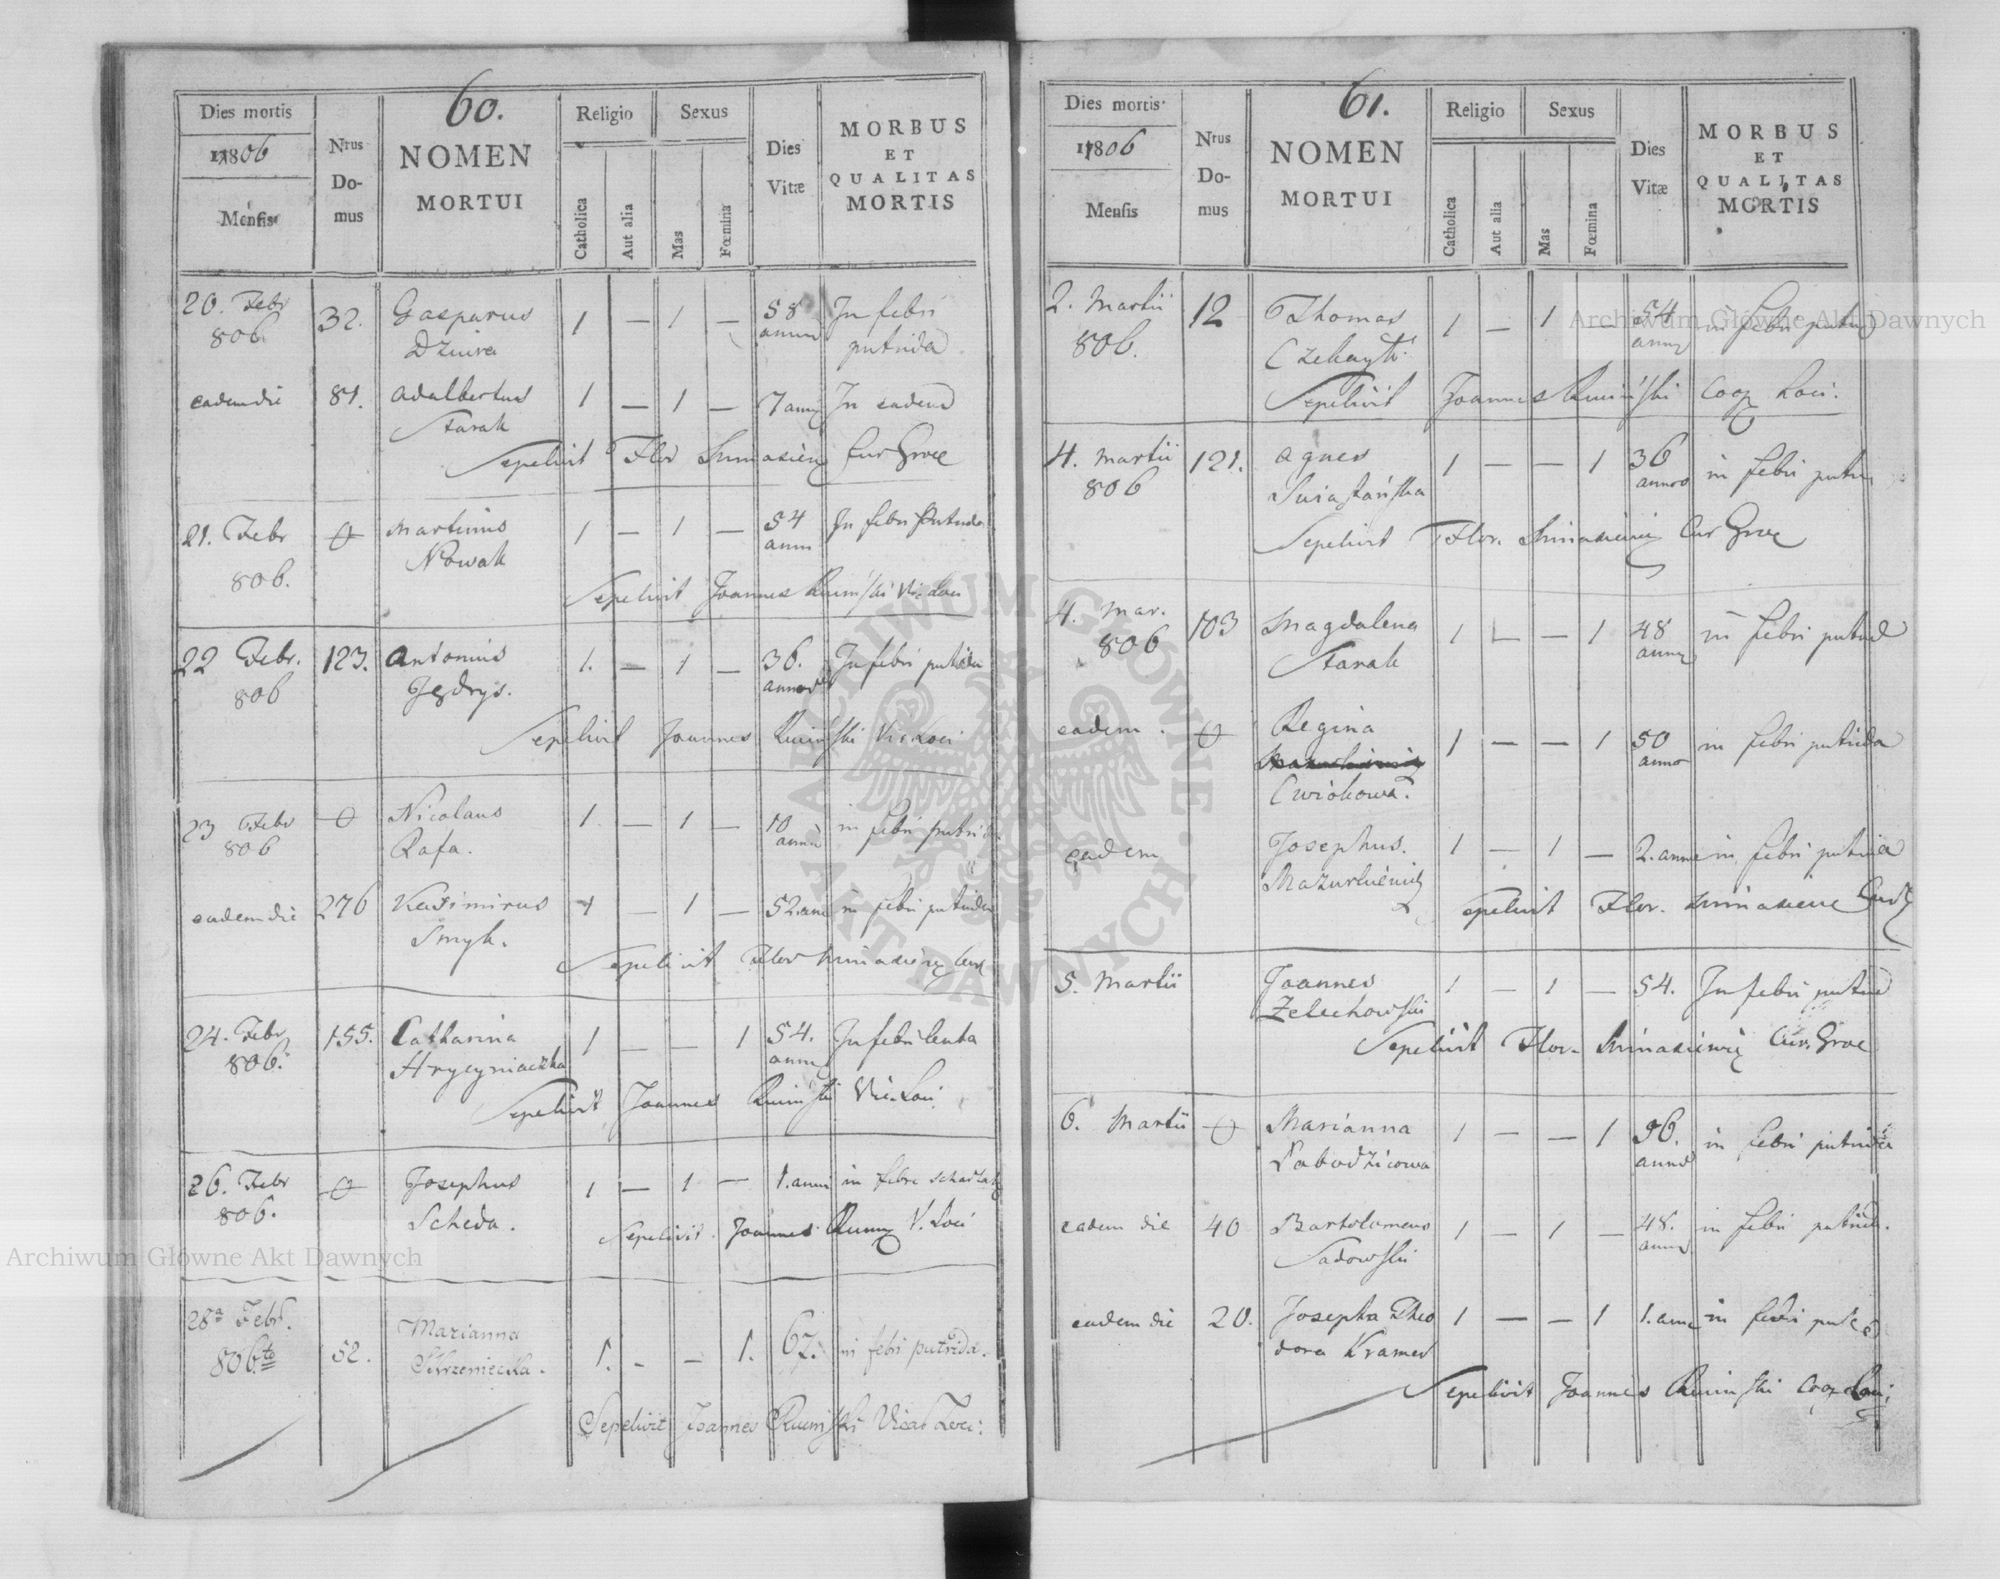 60.
Dies mortis
1806
Mensis
Nrus Do-mus
NOMEN
MORTUI
Religio
Catholica
Aut alia
Sexus
Mas
Fœmina
Dies
Vitæ
MORBUS
ET
QUALITAS
MORTIS
20. Febr 32. Gasparus 1 — 1 — 58 In febri
806 Dziura annor putrida
eadem die 81. Adalbertus 1 — 1 — 7 annor In eadem
Starak
Sepelivit Flor Cur
21. Febr Martinus 1 — 1 — 54 In febri putrida
806. Nowak ann
Sepelivit Joannes Vic Loci
22 Febr. 123. Antonius 1. — 1 — 36. In febri putrida
806 Jędrys. annor
Sepelivit Joannes Vic Loci
23 Febr Nicolaus 1. — 1 — 10 in febri putrida
806 Rafa. annor
eadem die 276 Kazimirus 1 — 1 — 52 ann in febri putrida
Smyk.
Sepelivit Flor
24. Febr 155. Catharina 1 — — 1 54. In febri lenta
806. Hrycyniaczka anno
Sepelivit Joannes Vic. Loci
26. Febr Josephus 1 — 1 — 1. anni in febre
806. Scheda.
Sepelivit Joannes V. Loci
28a Febr. 52. Marianna 1. - - 1. 67. in febri putrida.
806.to Skrzeniecka.
Sepelivit Joannes Vicar Loci:
61.
Dies mortis
1806
Mensis
Nrus Do-mus
NOMEN
MORTUI
Religio
Catholica
Aut alia
Sexus
Mas
Fœmina
Dies
Vitæ
MORBUS
ET
QUALITAS
MORTIS
2. Martii 12 Thomas 1 — 1 — 54 in febri putrid
806.
Sepelivit Joannes Coop Loci.
4. Martii 121. Agnes 1 — — 1 36 in febri putri
806 annor
Sepelivit Flor. Cur
4. Mar. 103 Magdalena 1 — — 1 48 in febri putrid
806 Starak anno
eadem. Regina 1 — — 1 50 in febri putrida
Cwiokowa. anno
eadem Josephus. 1 — 1 — 2. anno in febri putrida
Sepelivit Flor.
5. Martii Joannes 1 — 1 — 54. In febri putrid
Zelechowski
Sepelivit Flor. Cur.
6. Martii Marianna 1 — — 1 96. in febri putrida
annor
eadem die 40 Bartolomeus 1 — 1 — 48. in febri putrid.
Sadowski anno
eadem die 20. Josepha Theo 1 — — 1 1. ann in febri
dora Kramer
Sepelivit Joannes Coop Loci
Archiwum Główne Akt Dawnych
Archiwum Główne Akt Dawnych
ARCHIWUM GŁÓWNE · AKT DAWNYCH ·